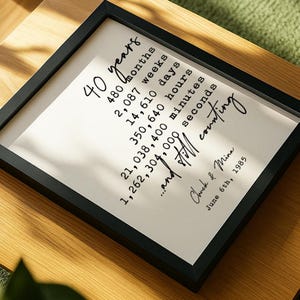 40 years
480 months
2,087 weeks
14,610 days
350,640 hours
21,038,400 minutes
1,262,304,000 seconds
...and still counting
Chuck & Mina
June 6th, 1985